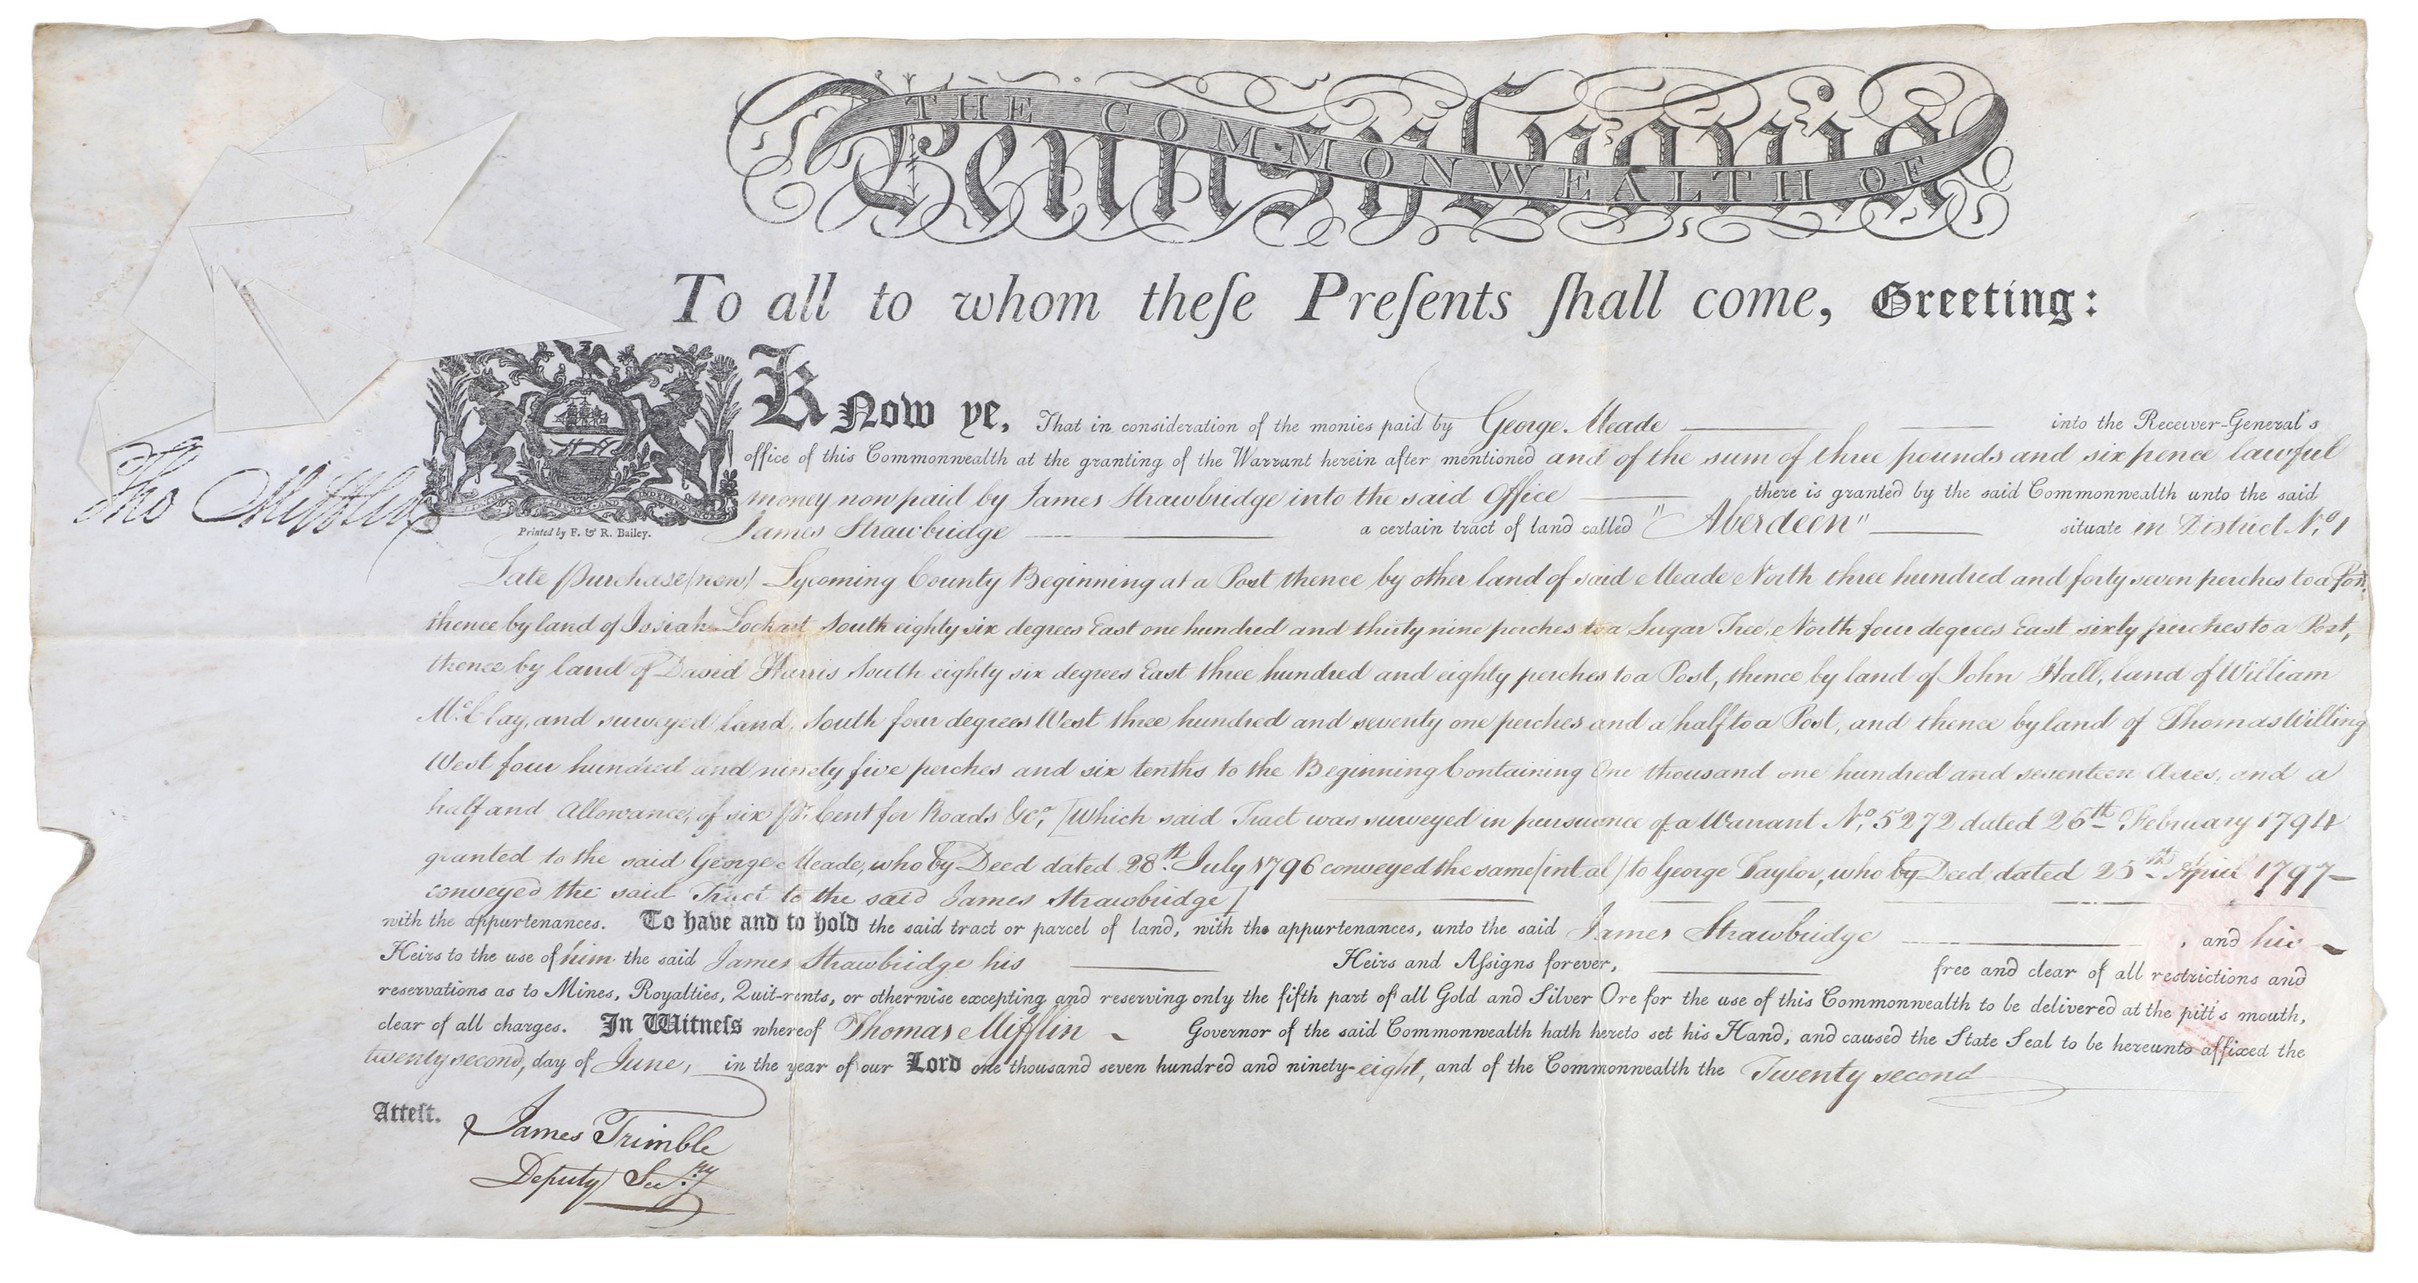 THE COMMONWEALTH OF
Pennsylvania
To all to whom theſe Preſents ſhall come, Greeting:
Know ye, That in consideration of the monies paid by George Meade into the Receiver-General's
office of this Commonwealth at the granting of the Warrant herein after mentioned and of the sum of three pounds and six pence lawful
money now paid by James Strawbridge into the said Office there is granted by the said Commonwealth unto the said
James Strawbridge a certain tract of land called "Aberdeen" situate in District No. 1
Tho Mifflin
Printed by F. & R. Bailey.
Late Purchase (now) Lycoming County Beginning at a Post thence by other land of said Meade North three hundred and forty seven perches to a Post,
thence by land of Josiah Lockart South eighty six degrees East one hundred and thirty nine perches to a Sugar Tree, North four degrees East sixty perches to a Post,
thence by land of David Harris South eighty six degrees East three hundred and eighty perches to a Post, thence by land of John Hall, land of William
McClay, and surveyed land, South four degrees West three hundred and seventy one perches and a half to a Post, and thence by land of Thomas Willing
West four hundred and ninety five perches and six tenths to the Beginning Containing One thousand one hundred and seventeen Acres, and a
half and Allowance, of six Pr. Cent for Roads &c. [Which said Tract was surveyed in pursuance of a Warrant No. 5272 dated 26th February 1794
granted to the said George Meade, who by Deed dated 28th July 1796 conveyed the same (int al) to George Taylor, who by Deed dated 25th April 1797
conveyed the said Tract to the said James Strawbridge]
with the appurtenances. To have and to hold the said tract or parcel of land, with the appurtenances, unto the said James Strawbridge, and his
Heirs to the use of him the said James Strawbridge his Heirs and Aſsigns forever, free and clear of all restrictions and
reservations as to Mines, Royalties, Quit-rents, or otherwise excepting and reserving only the fifth part of all Gold and Silver Ore for the use of this Commonwealth to be delivered at the pitt's mouth,
clear of all charges. In Witneſs whereof Thomas Mifflin Governor of the said Commonwealth hath hereto set his Hand, and caused the State Seal to be hereunto affixed the
twenty second, day of June, in the year of our Lord one thousand seven hundred and ninety-eight, and of the Commonwealth the Twenty second
Atteſt.
James Trimble
Deputy Secry